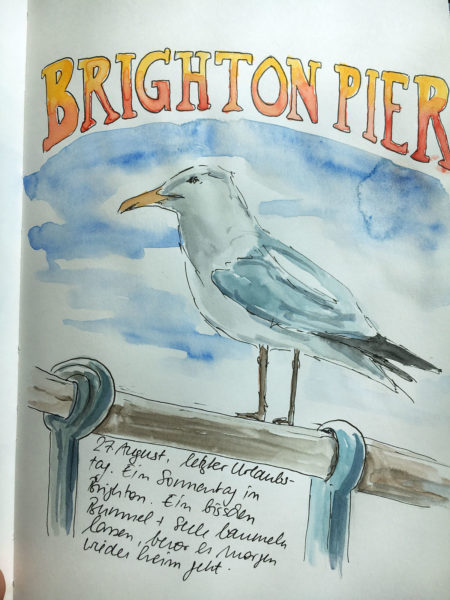 BRIGHTON PIER
27. August, letzter Urlaubs-
tag. Ein Sonnentag in
Brighton. Ein bisschen
Bummel + Seele baumeln
lassen, bevor es morgen
wieder heim geht.